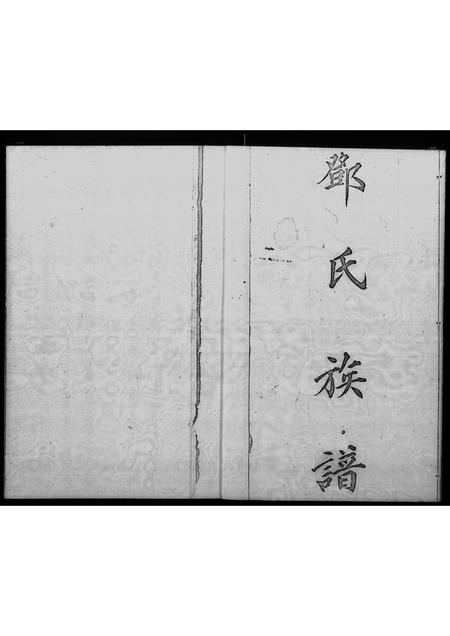 鄧氏族譜